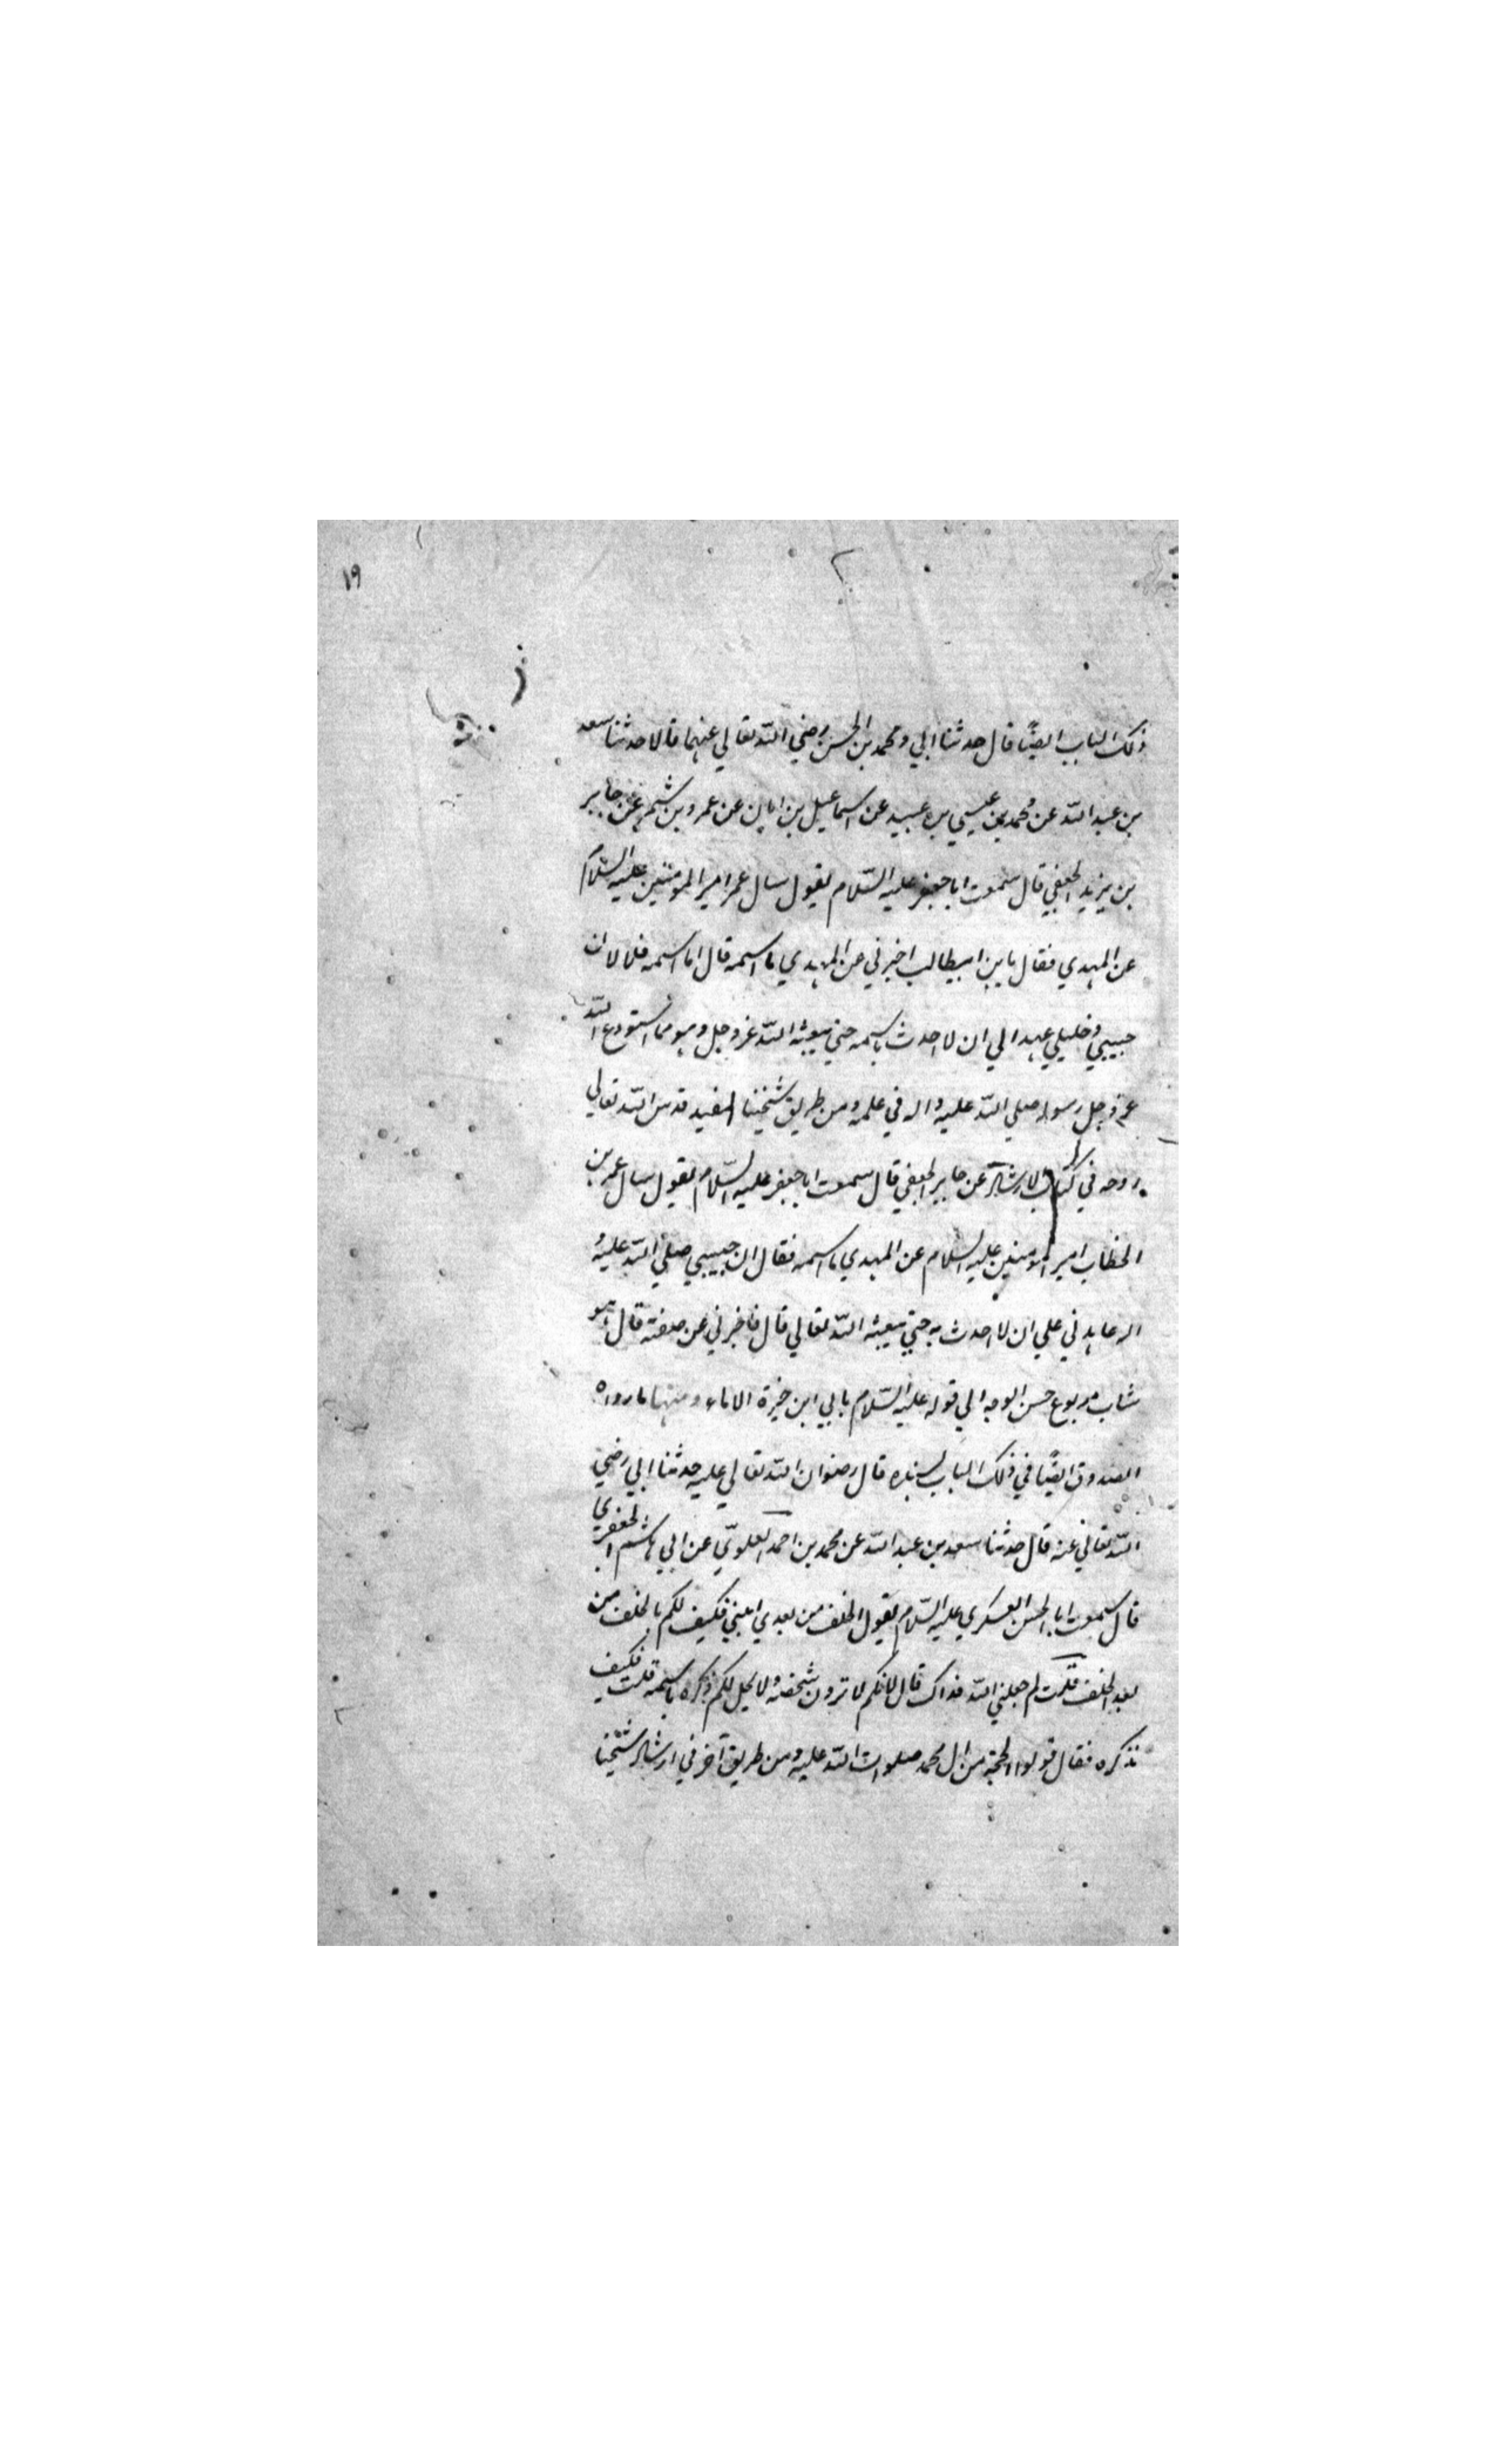 ١٩
ذلك الباب ايضًا قال حدثنا ابي ومحمد بن الحسن رضي الله تعالي عنهما قالا حدثنا سعد
بن عبد الله عن محمد بن عيسي بن عبيد عن اسماعيل بن ابان عن عمرو بن شمر عن جابر
بن يزيد الجعفي قال سمعت ابا جعفر عليه السّلام يقول سال عمر امير المومنين عليه السّلام
عن المهدي فقال يا بن ابيطالب اخبرني عن المهدي ما اسمه قال اما اسمه فلا لان
حبيبي وخليلي عهد الي ان لا احدث باسمه حتي يبعثه الله عز وجل وهو مما استودع الله
عز وجل رسوله صلي الله عليه واله في علمه ومن طريق شيخنا المفيد قدس الله تعالي
روحه في كتاب الارشاد عن جابر الجعفي قال سمعت ابا جعفر عليه السّلام يقول سال عمر بن
الخطاب امير المومنين عليه السلام عن المهدي ما اسمه فقال ان حبيبي صلي الله عليه و
اله عاهدني علي ان لا احدث به حتي يبعثه الله تعالي قال فاخبرني عن صفته قال هو
شاب مربوع حسن الوجه الي قوله عليه السّلام بابي ابن خيرة الاماء ومنها ما رواه
الصدوق ايضًا في ذلك الباب بسنده قال رضوان الله تعالي عليه حدثنا ابي رضي
الله تعالي عنه قال حدثنا سعد بن عبد الله عن محمد بن احمد العلويّ عن ابي هاشم الجعفري
قال سمعت ابا الحسن العسكري عليه السّلام يقول الخلف من بعدي ابني فكيف لكم بالخلف من
بعد الخلف قلت لم جعلني الله فداك قال لانكم لا ترون شخصه ولا يحل لكم ذكره باسمه قلت فكيف
نذكره فقال قولوا الحجة من ال محمد صلوات الله عليه ومن طريق آخر في ارشاد شيخنا